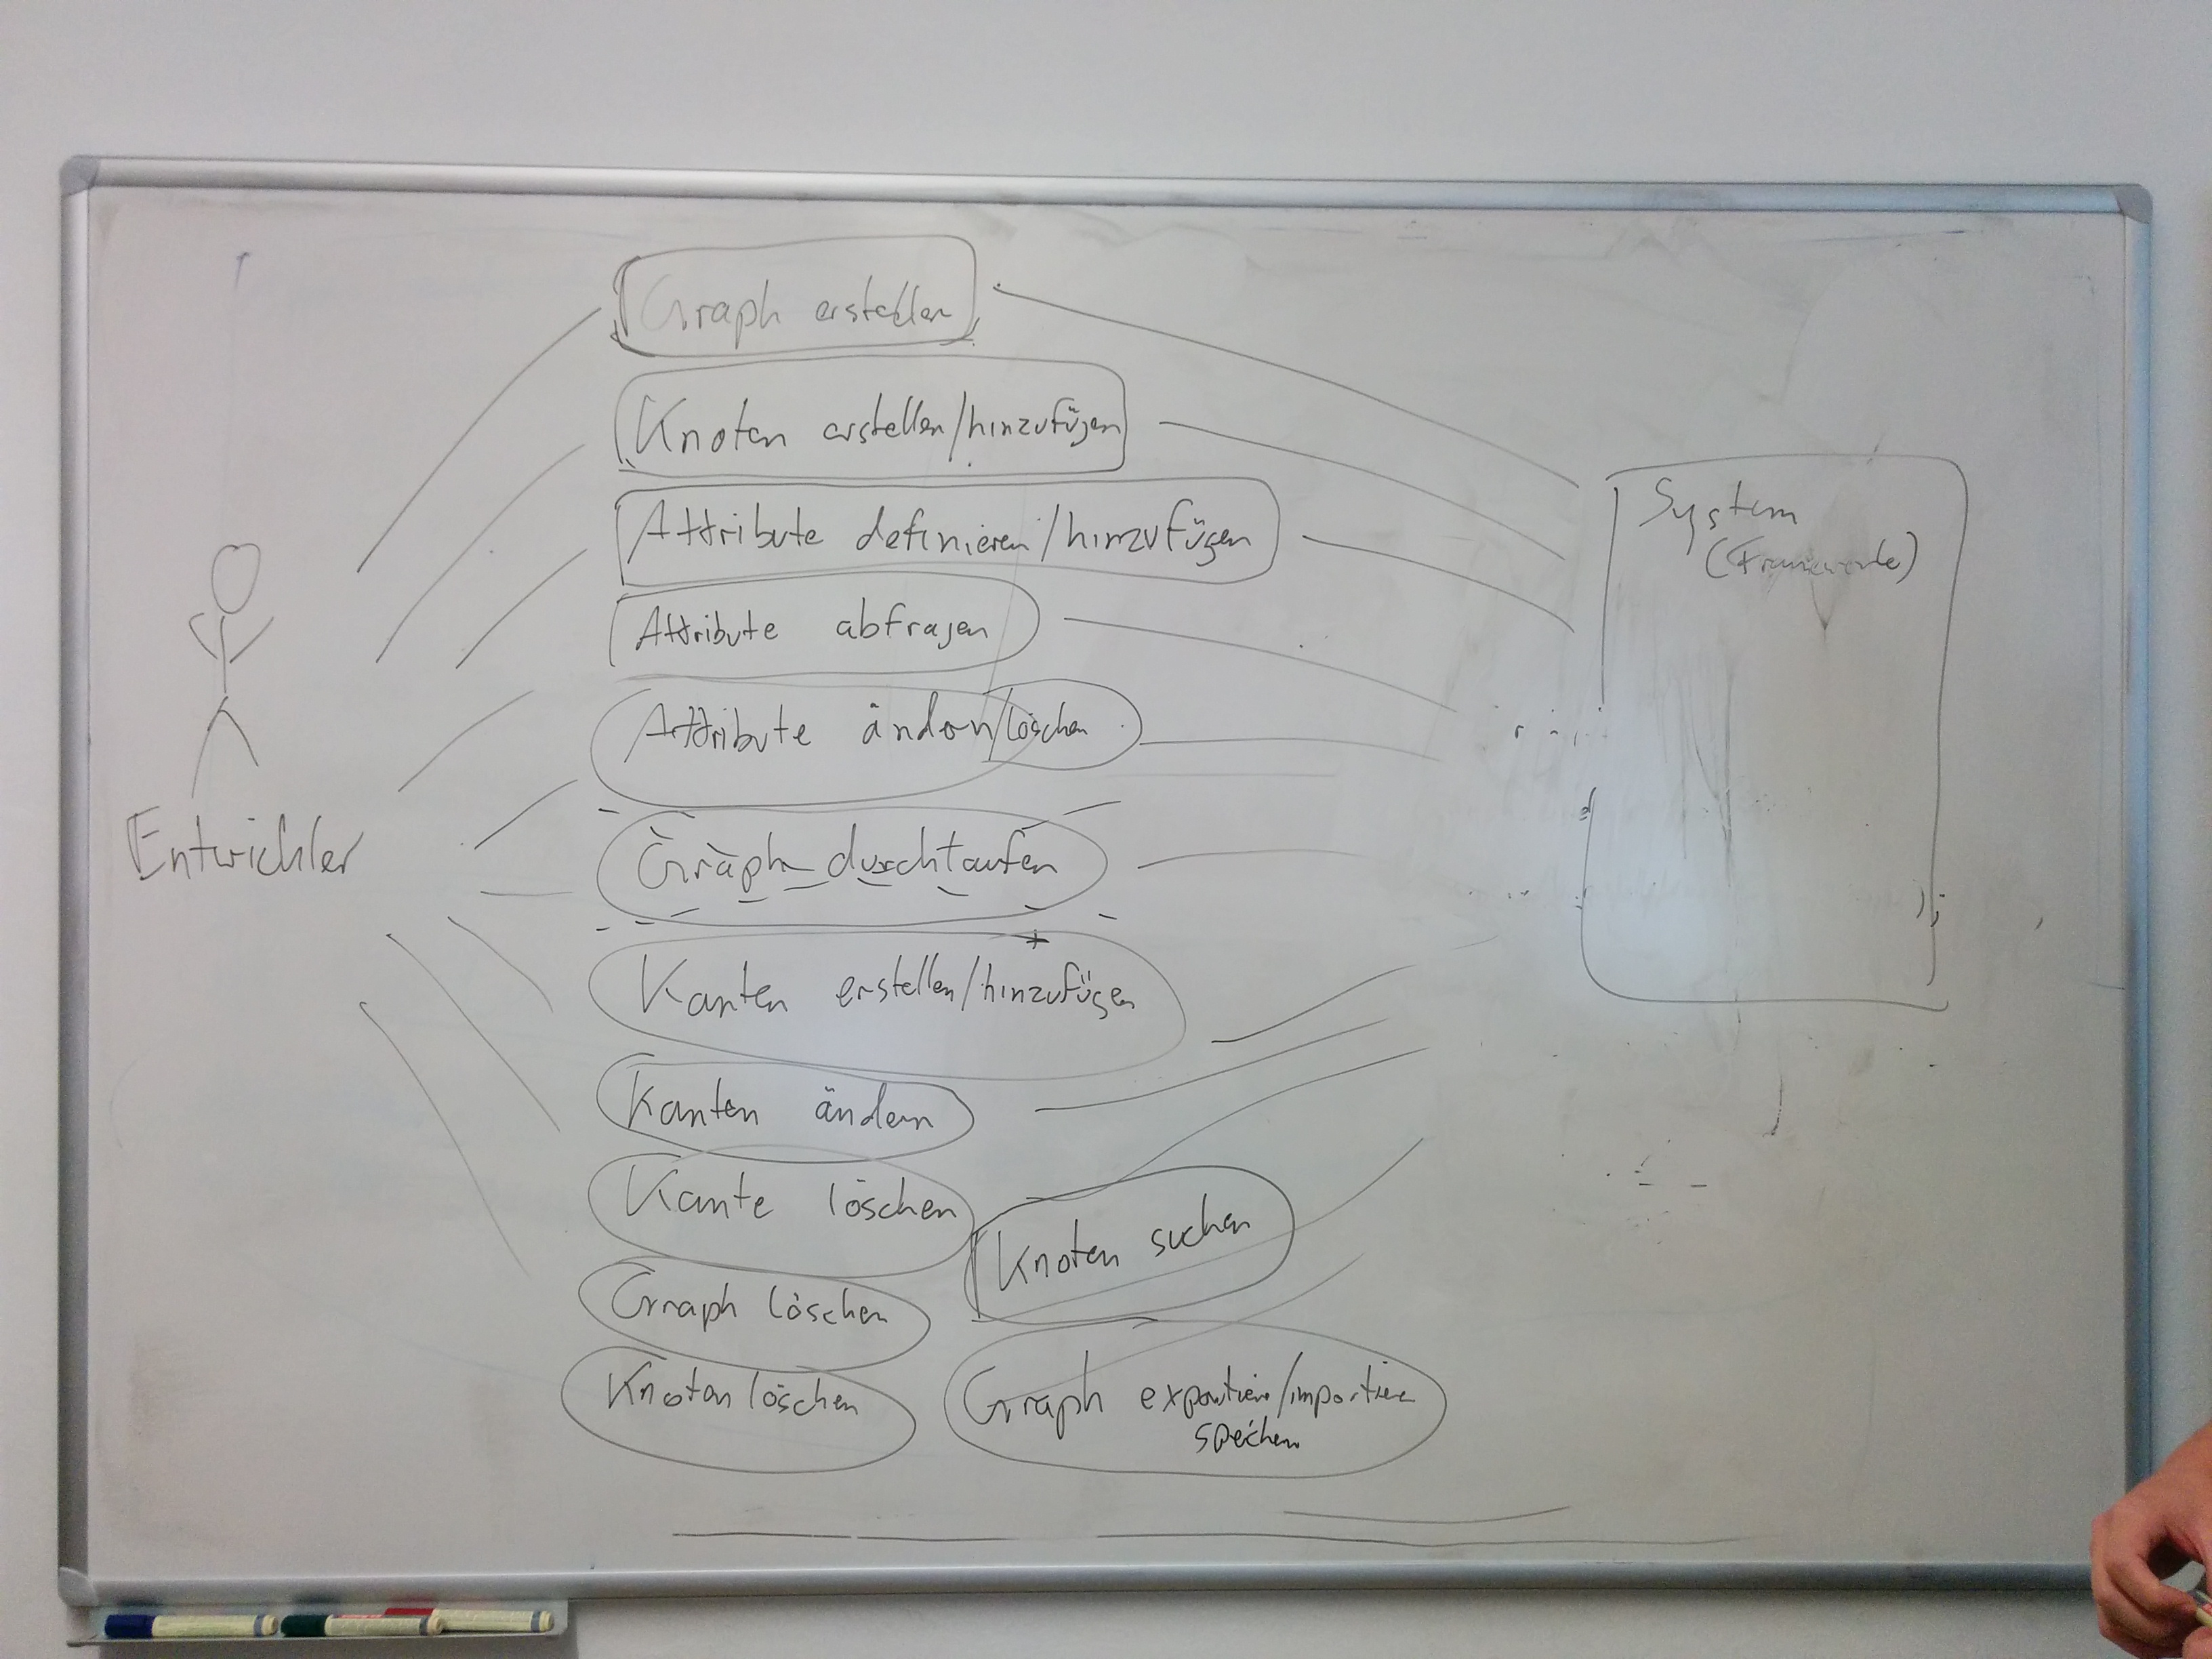 Graph erstellen
Knoten erstellen/hinzufügen
Attribute definieren/hinzufügen
System
(Framework)
Attribute abfragen
Attribute ändern/löschen
Entwickler
Graph durchlaufen
Kanten erstellen/hinzufügen
Kanten ändern
Kante löschen
Knoten suchen
Graph löschen
Knoten löschen
Graph exportieren/importieren
speichern